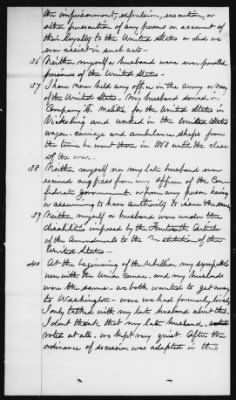 the imprisonment, expulsion, execution, or
other persecution of any person on account of
their loyalty to the United States or did we
ever assist in such acts -
36 Neither myself or husband were ever paroled
prisoners of the United States -
37 I have never held any office in the army or navy
of the United States. My husband served in
Company in the United States in
Vicksburg and worked in the United States
wagon, carriage and ambulance shops from
the time he went there in 1863 until the close
of the war. -
38 Neither myself nor my late husband ever
received any pass from any officer of the Con-
federate government, or from any person having
or assuming to have authority to issue the same
39 Neither myself or husband were under the
disabilities imposed by the Fourteenth Article
of the Amendments to the Constitution of the
United States -
40 At the beginning of the rebellion my sympathies
were with the Union cause, and my husbands
were the same. we both wanted to get away
to Washington - were we had formerly lived,
I only talked with my late husband about this.
I dont think that my late husband
voted at all. we kept very quiet After the
ordinance of secession was adopted in the